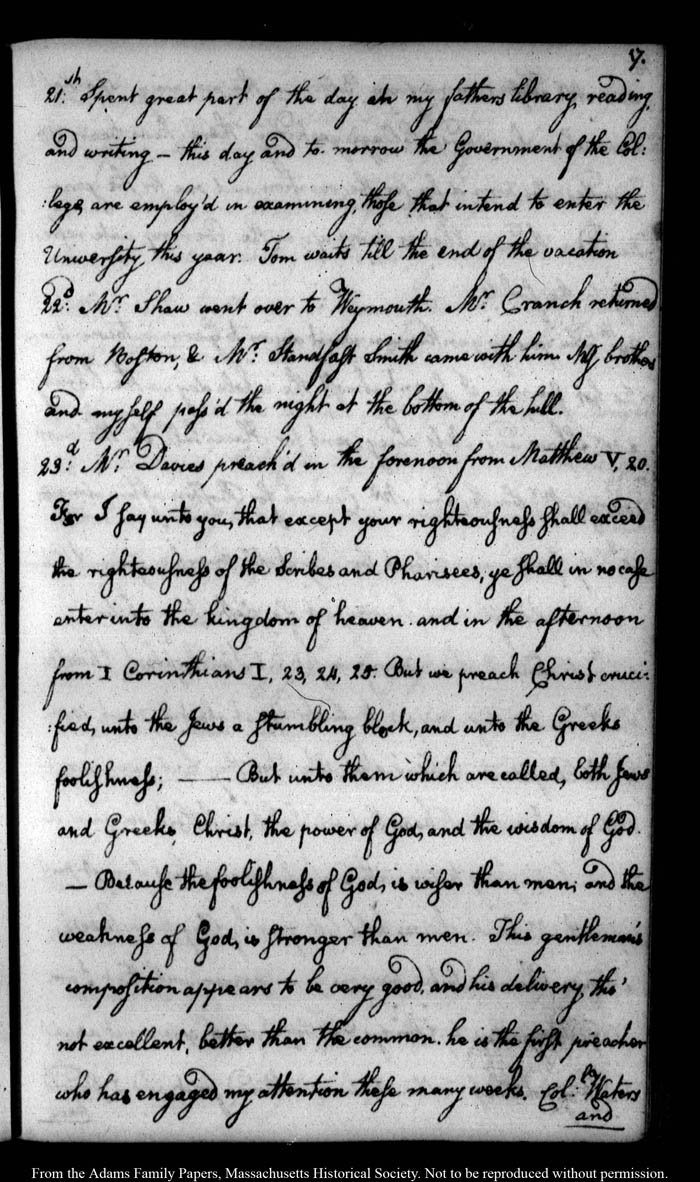 7.
21.th Spent great part of the day in my fathers library, reading,
and writing — this day and to-morrow the Government of the Col:
:lege, are employ'd in examining, those that intend to enter the
University this year. Tom waits till the end of the vacation
22d: Mr. Shaw went over to Weymouth. Mr. Cranch returned
from Boston, & Mr. Standfast Smith came with him. My brothers
and myself pass'd the night at the bottom of the hill.
23.d Mr. Davies preach'd in the forenoon from Matthew V, 20.
For I say unto you, that except your righteousness shall exceed
the righteousness of the Scribes and Pharisees, ye shall in no case
enter into the kingdom of heaven. and in the afternoon
from I Corinthians I, 23, 24, 25. But we preach Christ cruci:
:fied, unto the Jews a stumbling block, and unto the Greeks
foolishness; —— But unto them which are called, both Jews
and Greeks, Christ, the power of God, and the wisdom of God.
— Because the foolishness of God, is wiser than men; and the
weakness of God, is stronger than men. This gentleman's
composition appears to be very good, and his delivery, tho'
not excellent, better than the common. he is the first preacher
who has engaged my attention these many weeks. Col: Waters
and
From the Adams Family Papers, Massachusetts Historical Society. Not to be reproduced without permission.